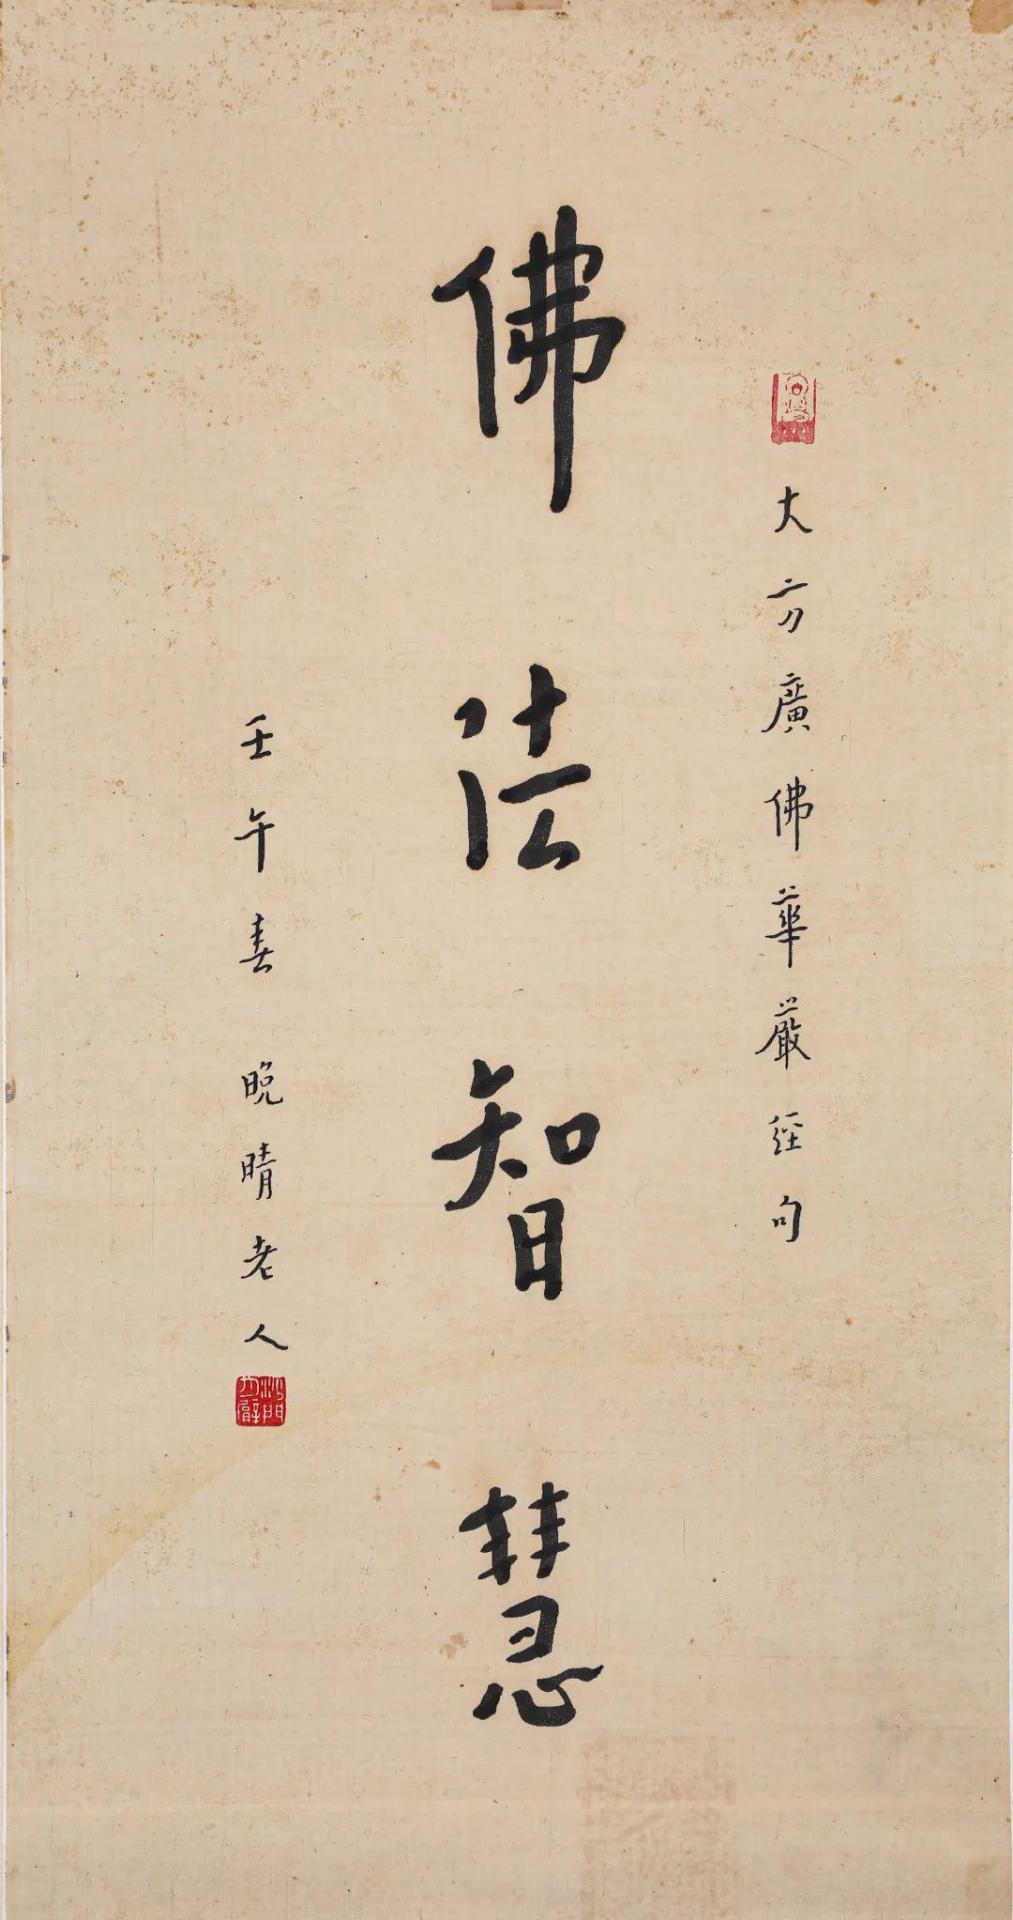 大方廣佛華嚴經句
佛法智慧
壬午春 晚晴老人